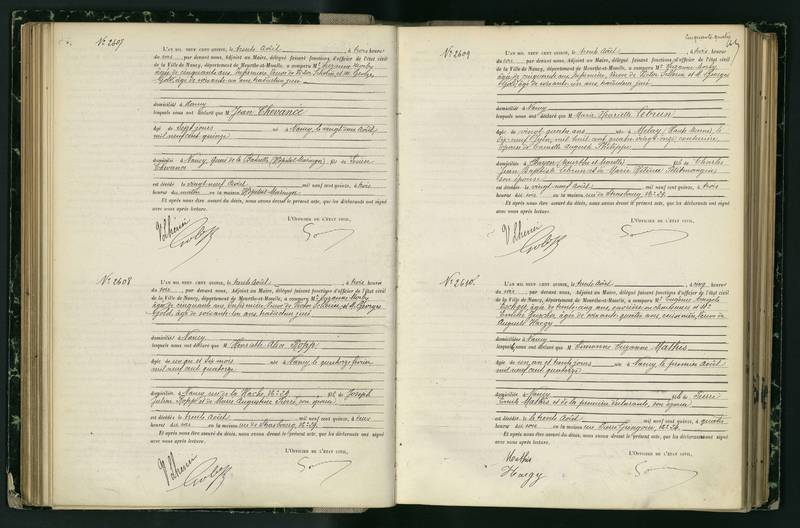 N° 2607
L'AN MIL NEUF CENT QUINZE, le trente Août, à trois heures
du soir par devant nous, Adjoint au Maire, délégué faisant fonctions d'officier de l'état civil
de la Ville de Nancy, département de Meurthe-et-Moselle, a comparu M
âgée de cinquante ans, infirmière, veuve de Victor et M. Georges
Gold, âgé de soixante-un ans, traducteur juré
domiciliés à Nancy
lesquels nous ont déclaré que M Jean Chevance
âgé de sept jours né à Nancy, le vingt deux Août
mil neuf cent quinze
domicilié à Nancy, Quai de la Bataille (Hôpital Maringer) fils de Louise
Chevance
est décédé le vingt neuf Août mil neuf cent quinze, à trois
heures du matin en la maison Hôpital Maringer
Et après nous être assuré du décès, nous avons dressé le présent acte, que les déclarants ont signé
avec nous après lecture.
L'OFFICIER DE L'ÉTAT CIVIL,
N° 2608
L'AN MIL NEUF CENT QUINZE, le trente Août, à trois heures
du soir par devant nous, Adjoint au Maire, délégué faisant fonctions d'officier de l'état civil
de la Ville de Nancy, département de Meurthe-et-Moselle, a comparu M
âgée de cinquante ans, infirmière, veuve de Victor et M. Georges
Gold, âgé de soixante-un ans, traducteur juré
domiciliés à Nancy
lesquels nous ont déclaré que M Henriette Alice
âgée de un an et six mois née à Nancy, le quatorze février
mil neuf cent quatorze
domiciliée à Nancy, rue de la Hache, n° 29 fille de Joseph
Julien et de Marie Augustine Pierré, son épouse
est décédée le trente Août mil neuf cent quinze, à deux
heures du soir en la maison rue de Strasbourg, n° 29
Et après nous être assuré du décès, nous avons dressé le présent acte, que les déclarants ont signé
avec nous après lecture.
L'OFFICIER DE L'ÉTAT CIVIL,
Cinquante quatre
N° 2609
L'AN MIL NEUF CENT QUINZE, le trente Août, à trois heures
du soir par devant nous, Adjoint au Maire, délégué faisant fonctions d'officier de l'état civil
de la Ville de Nancy, département de Meurthe-et-Moselle, a comparu M
âgée de cinquante ans, infirmière, veuve de Victor et M. Georges
Gold, âgé de soixante-un ans, traducteur juré
domiciliés à Nancy
lesquels nous ont déclaré que M Marie Henriette Lebrun
âgée de vingt quatre ans née à Melay (Haute Marne), le
dix-neuf Juin, mil huit cent quatre-vingt-onze, couturière,
épouse de Camille Auguste Philippe
domiciliée à Bayon (Meurthe et Moselle) fille de Charles
Jean Baptiste Lebrun et de Marie
son épouse
est décédée le vingt neuf Août mil neuf cent quinze, à trois
heures du soir en la maison rue de Strasbourg, n° 29
Et après nous être assuré du décès, nous avons dressé le présent acte, que les déclarants ont signé
avec nous après lecture.
L'OFFICIER DE L'ÉTAT CIVIL,
N° 2610
L'AN MIL NEUF CENT QUINZE, le trente Août, à cinq heures
du soir par devant nous, Adjoint au Maire, délégué faisant fonctions d'officier de l'état civil
de la Ville de Nancy, département de Meurthe-et-Moselle, a comparu M Eugénie
âgée de trente-cinq ans, ouvrière en chaussures et
âgée de soixante-quatre ans, cuisinière, veuve de
Auguste Hargy
domiciliées à Nancy
lesquelles nous ont déclaré que M Simonne Suzanne Mathis
âgée de un an et trente jours née à Nancy, le premier Août
mil neuf cent quatorze
domiciliée à Nancy fille de Pierre
Emile Mathis et de la première déclarante, son épouse
est décédée le trente Août mil neuf cent quinze, à quatre
heures du soir en la maison rue Pierre Gringoire, n° 24
Et après nous être assuré du décès, nous avons dressé le présent acte, que les déclarants ont signé
avec nous après lecture.
L'OFFICIER DE L'ÉTAT CIVIL,
Mathis
Hargy